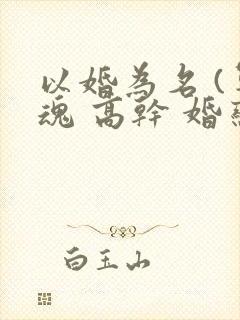 以婚為名(
魂 高幹 婚
白玉山